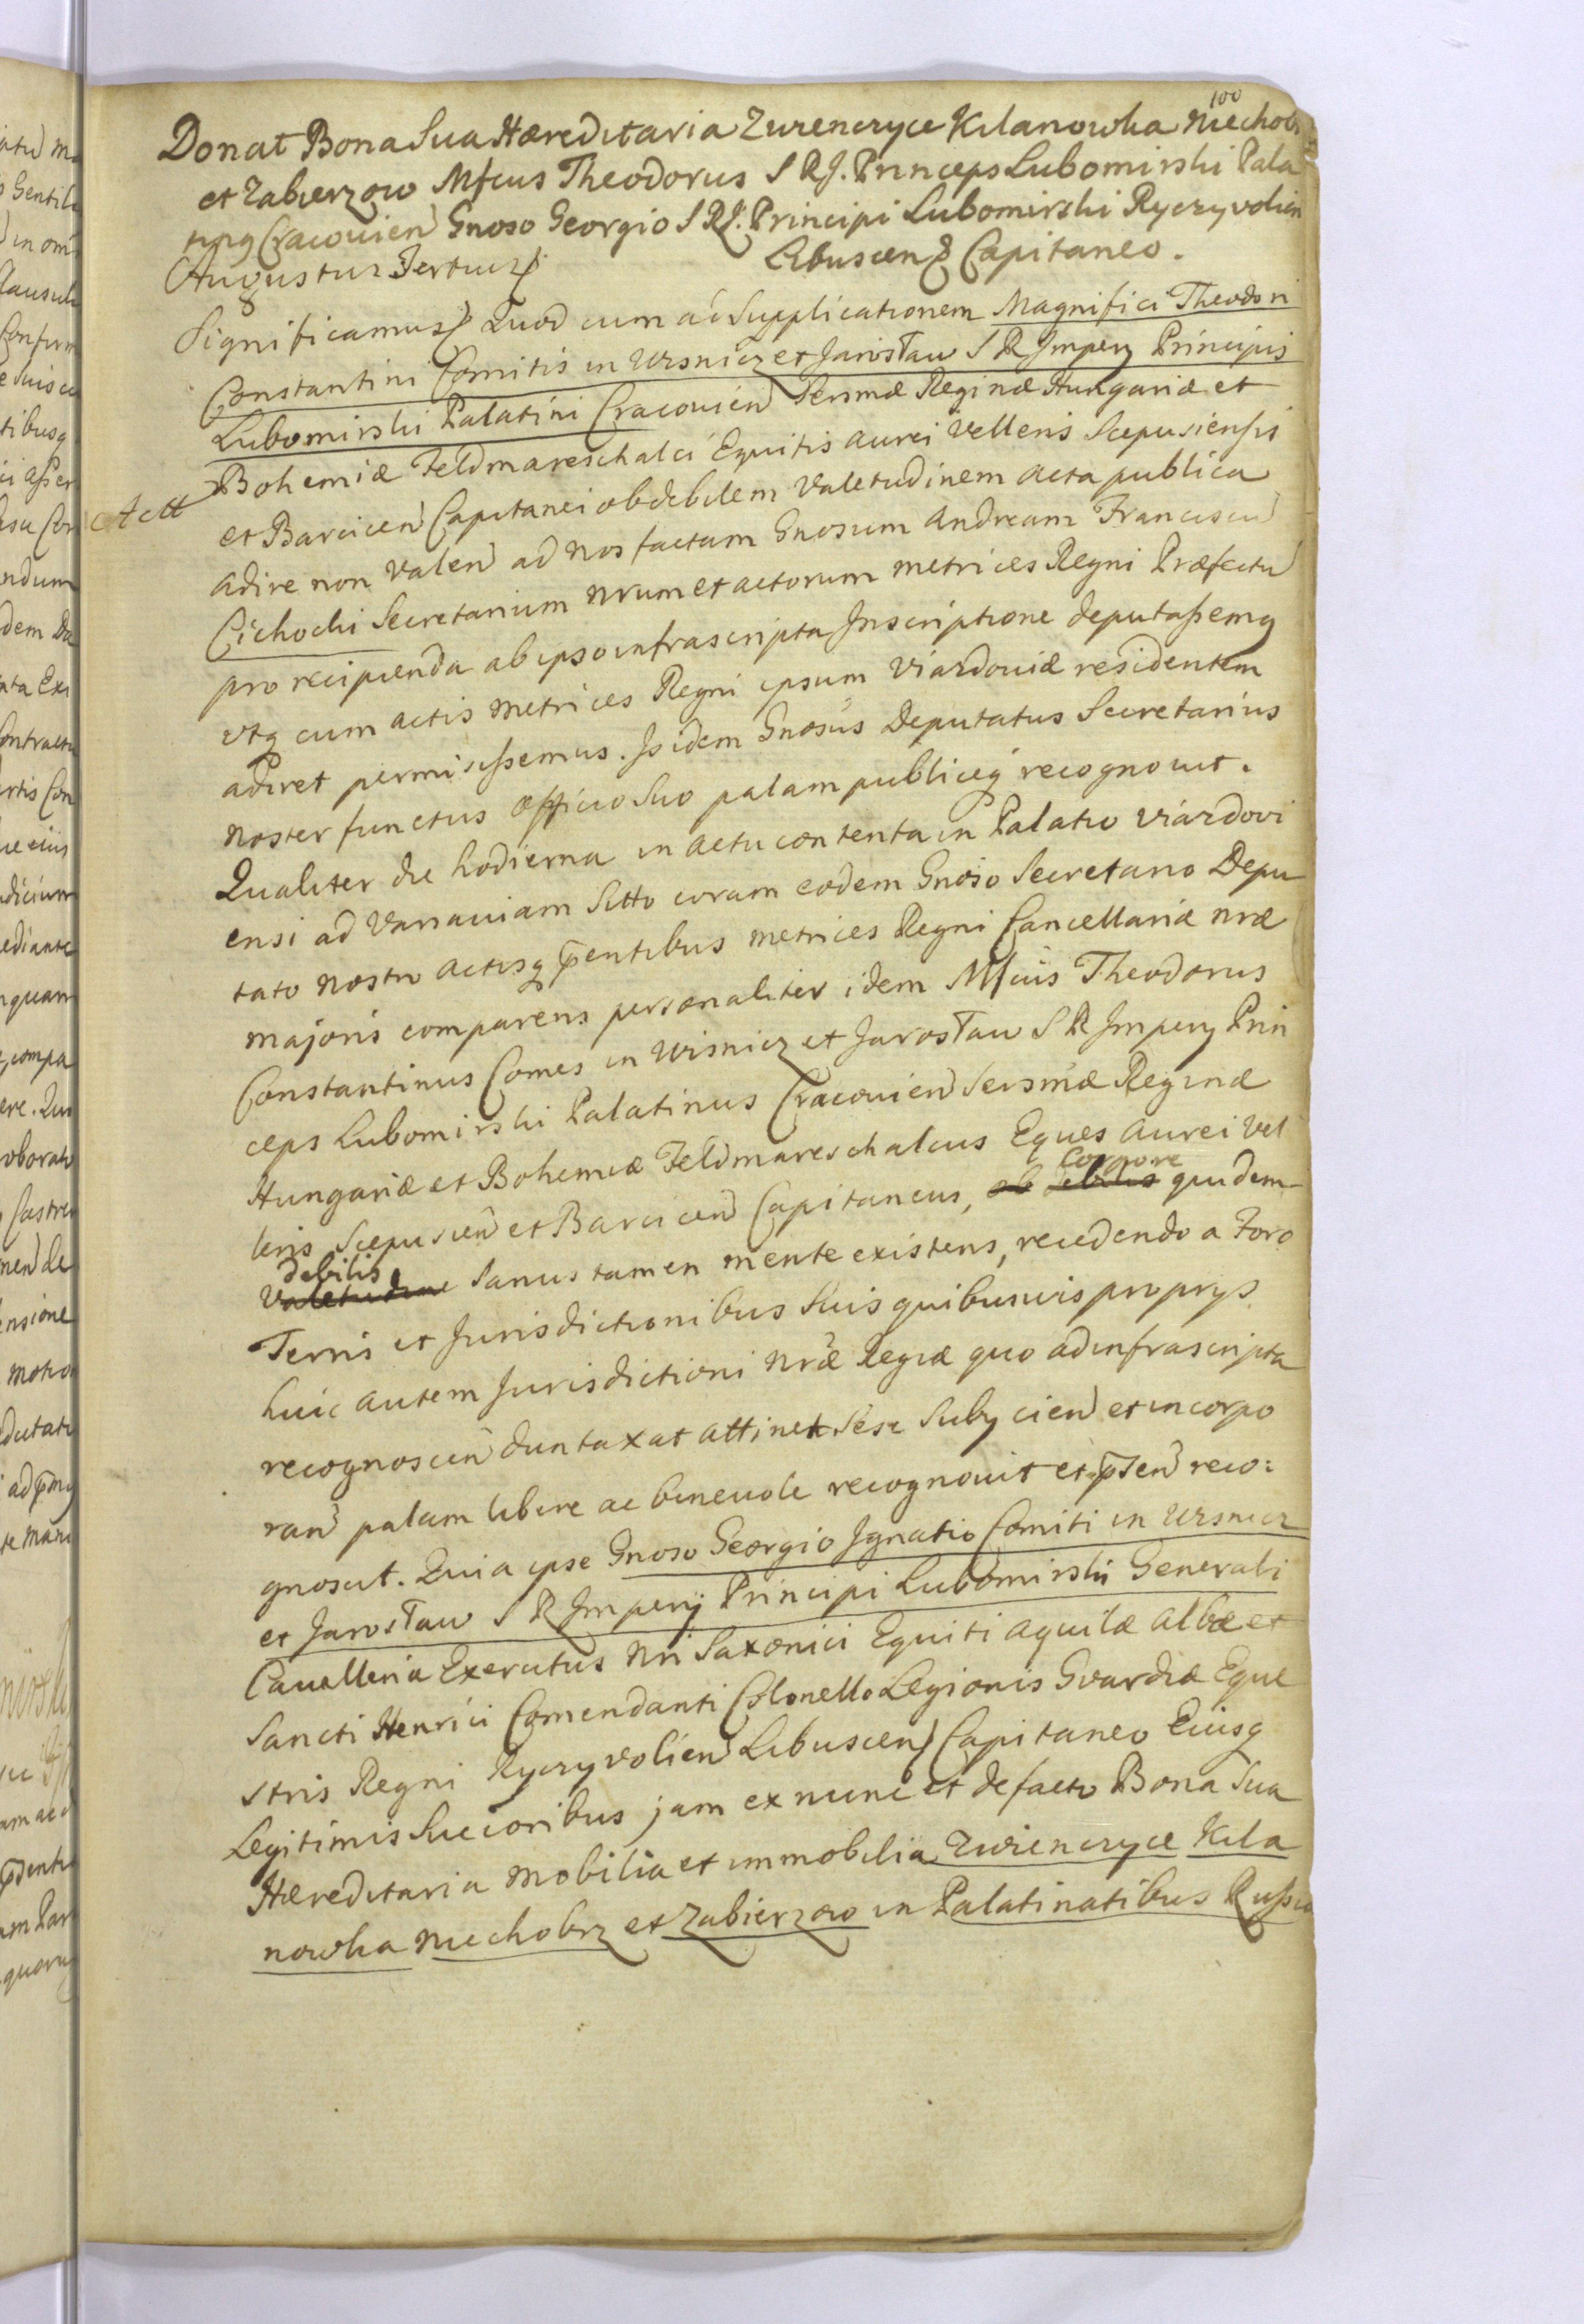 100
Donat Bona Sua Hæreditaria Zwrenczyce Kilanowka Niechobr
et Zabierzow Mfcus Theodorus S R J. Princeps Lubomirski Pala
tinq Cracovien Gnoso Georgio S R J. Principi Lubomirski Ryczyvolien
Libuscen Capitaneo.
Augustus Tertius
Significamus Quod cum ad Supplicationem Magnifici Theodori
Constantini Comitis in Wisnicz et Jarosław S R Jmperÿ Principis
Lubomirski Palatini Cracovien Sersmæ Reginæ Hungariæ et
Bohemiæ Feldmareschalci Equitis Aurei Velleris Scepusiensis
et Barcicen Capitanei ob debilem Valetudinem Acta publica
adire non valen ad nos factam Gnosum Andream Franciscu
Cichocki Secretarium nrum et actorum metrices Regni Præfectu
pro recipienda ab ipso infrascripta Jnscriptione deputassemq
vtq cum actis metrices Regni ipsum Viazdoviæ residentem
adiret permisissemus. Jsidem Gnosus Deputatus Secretarius
noster functus officio Suo palam publiceq recognovit.
Qualiter die hodierna in actu contenta in Palatio Viazdovi
ensi ad Varsaviam Sitto coram eodem Gnoso Secretario Depu
tato nostro actisq pentibus metrices Regni Cancellariæ nræ
majoris comparens personaliter idem Mfcus Theodorus
Constantinus Comes in Wisnicz et Jarosław S R Jmperÿ Prin
ceps Lubomirski Palatinus Cracovien Sersmæ Reginæ
Hungariæ et Bohemiæ Feldmareschalcus Eques Aurei Vel
leris Scepusien et Barcicen Capitaneus, ob debilis Corpore quidem
Valetudine debilis Sanus tamen mente existens, recedendo a Foro
Terris et Jurisdictionibus Suis quibusvis proprÿs
huic autem Jurisdictioni nræ Regiæ quo ad infrascripta
recognoscen duntaxat attinet Sese Subÿcien et incorpo
ran palam libere ac benevole recognovit et psen reco:
gnoscit. Quia ipse Gnoso Georgio Jgnatio Comiti in Wisnicz
et Jarosław S R Jmperÿ Principi Lubomirski Generali
Cavalleria Exercitus nri Saxonici Equiti Aquilæ Albæ et
Sancti Henrici Comendanti Colonello Legionis Gvardiæ Eque
stris Regni Ryczyvolien Libuscen Capitaneo Eiusq
Legitimis Succoribus jam ex nunc et de facto Bona Sua
Hæreditaria mobilia et immobilia Zwienczyce Kila
nowka Niechobrz et Zabierzow in Palatinatibus Russiæ